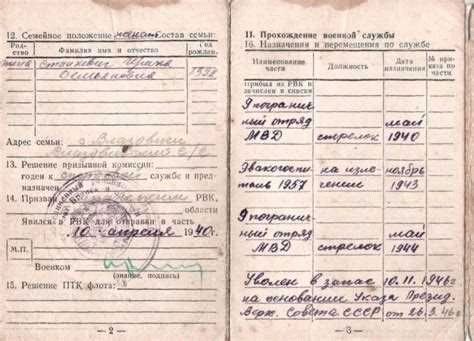 12. Семейное положение холост Состав семьи:
Родство Фамилия имя и отчество Год рожден.
1898
Адрес семьи:
13. Решение призывной комиссии:
годен к службе и предназначен
14. Призван РВК,
области
Явился в РВК для отправки в часть
10 апреля 1940 г.
М.П.
Военком
(звание, подпись)
15. Решение ПТК флота:
— 2 —
11. Прохождение военной службы
16. Назначения и перемещения по службе
Наименование части Должность Дата назначения № приказа
Прибыл из РВК и зачислен в списки
9 погранич-
ный отряд май
МВД стрелок 1940
Эвакогоспи- на изле- ноябрь
таль 1957 чении 1943
9 погранич-
ный отряд май
МВД стрелок 1944
Уволен в запас 10.11.1946
на основании Указа Презид.
Верх. Совета СССР от 26.9.46
— 3 —